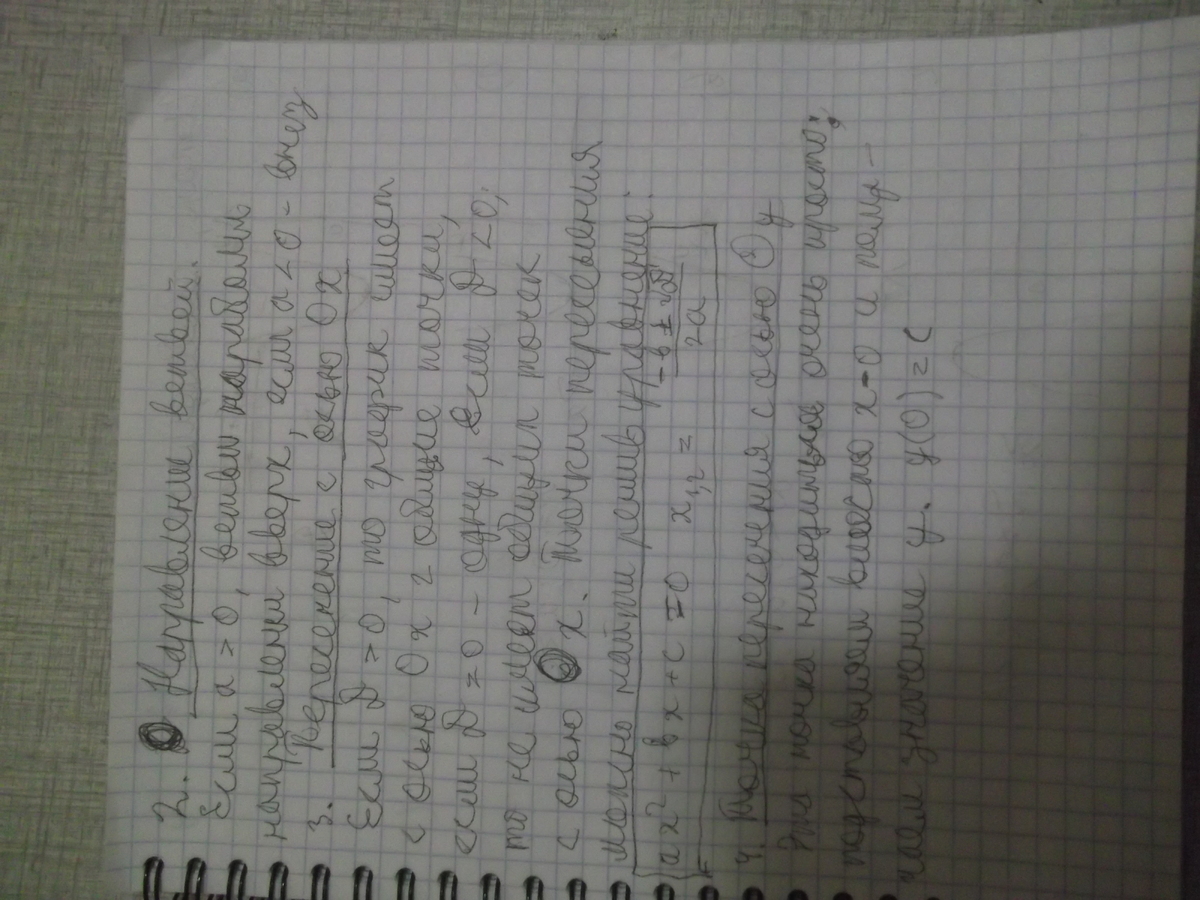 2. Направление ветвей.
Если a > 0, ветви параболы
направлены вверх, если a < 0 - вниз
3. Пересечение с осью Ox
Если D > 0, то график имеет
с осью Ox 2 общие точки,
если D = 0 - одну, если D < 0,
то не имеет общих точек
с осью x. Точки пересечения
можно найти решив уравнение:
ax² + bx + c = 0 x₁,₂ = -b ± √D / 2a
4. Точка пересения с осью y
Эта точка находится очень просто;
подставляем вместо x = 0 и полу-
чаем значение y. y(0) = c